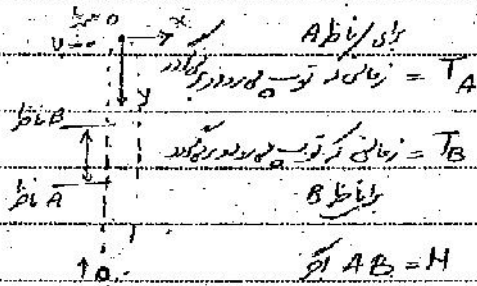 v=0
o x
برای ناظر A
T_A = زمانی که توپ می‌رود و برمی‌گردد
y
ناظر B
T_B = زمانی که توپ می‌رود و برمی‌گردد
ناظر A
برای ناظر B
اگر AB = H